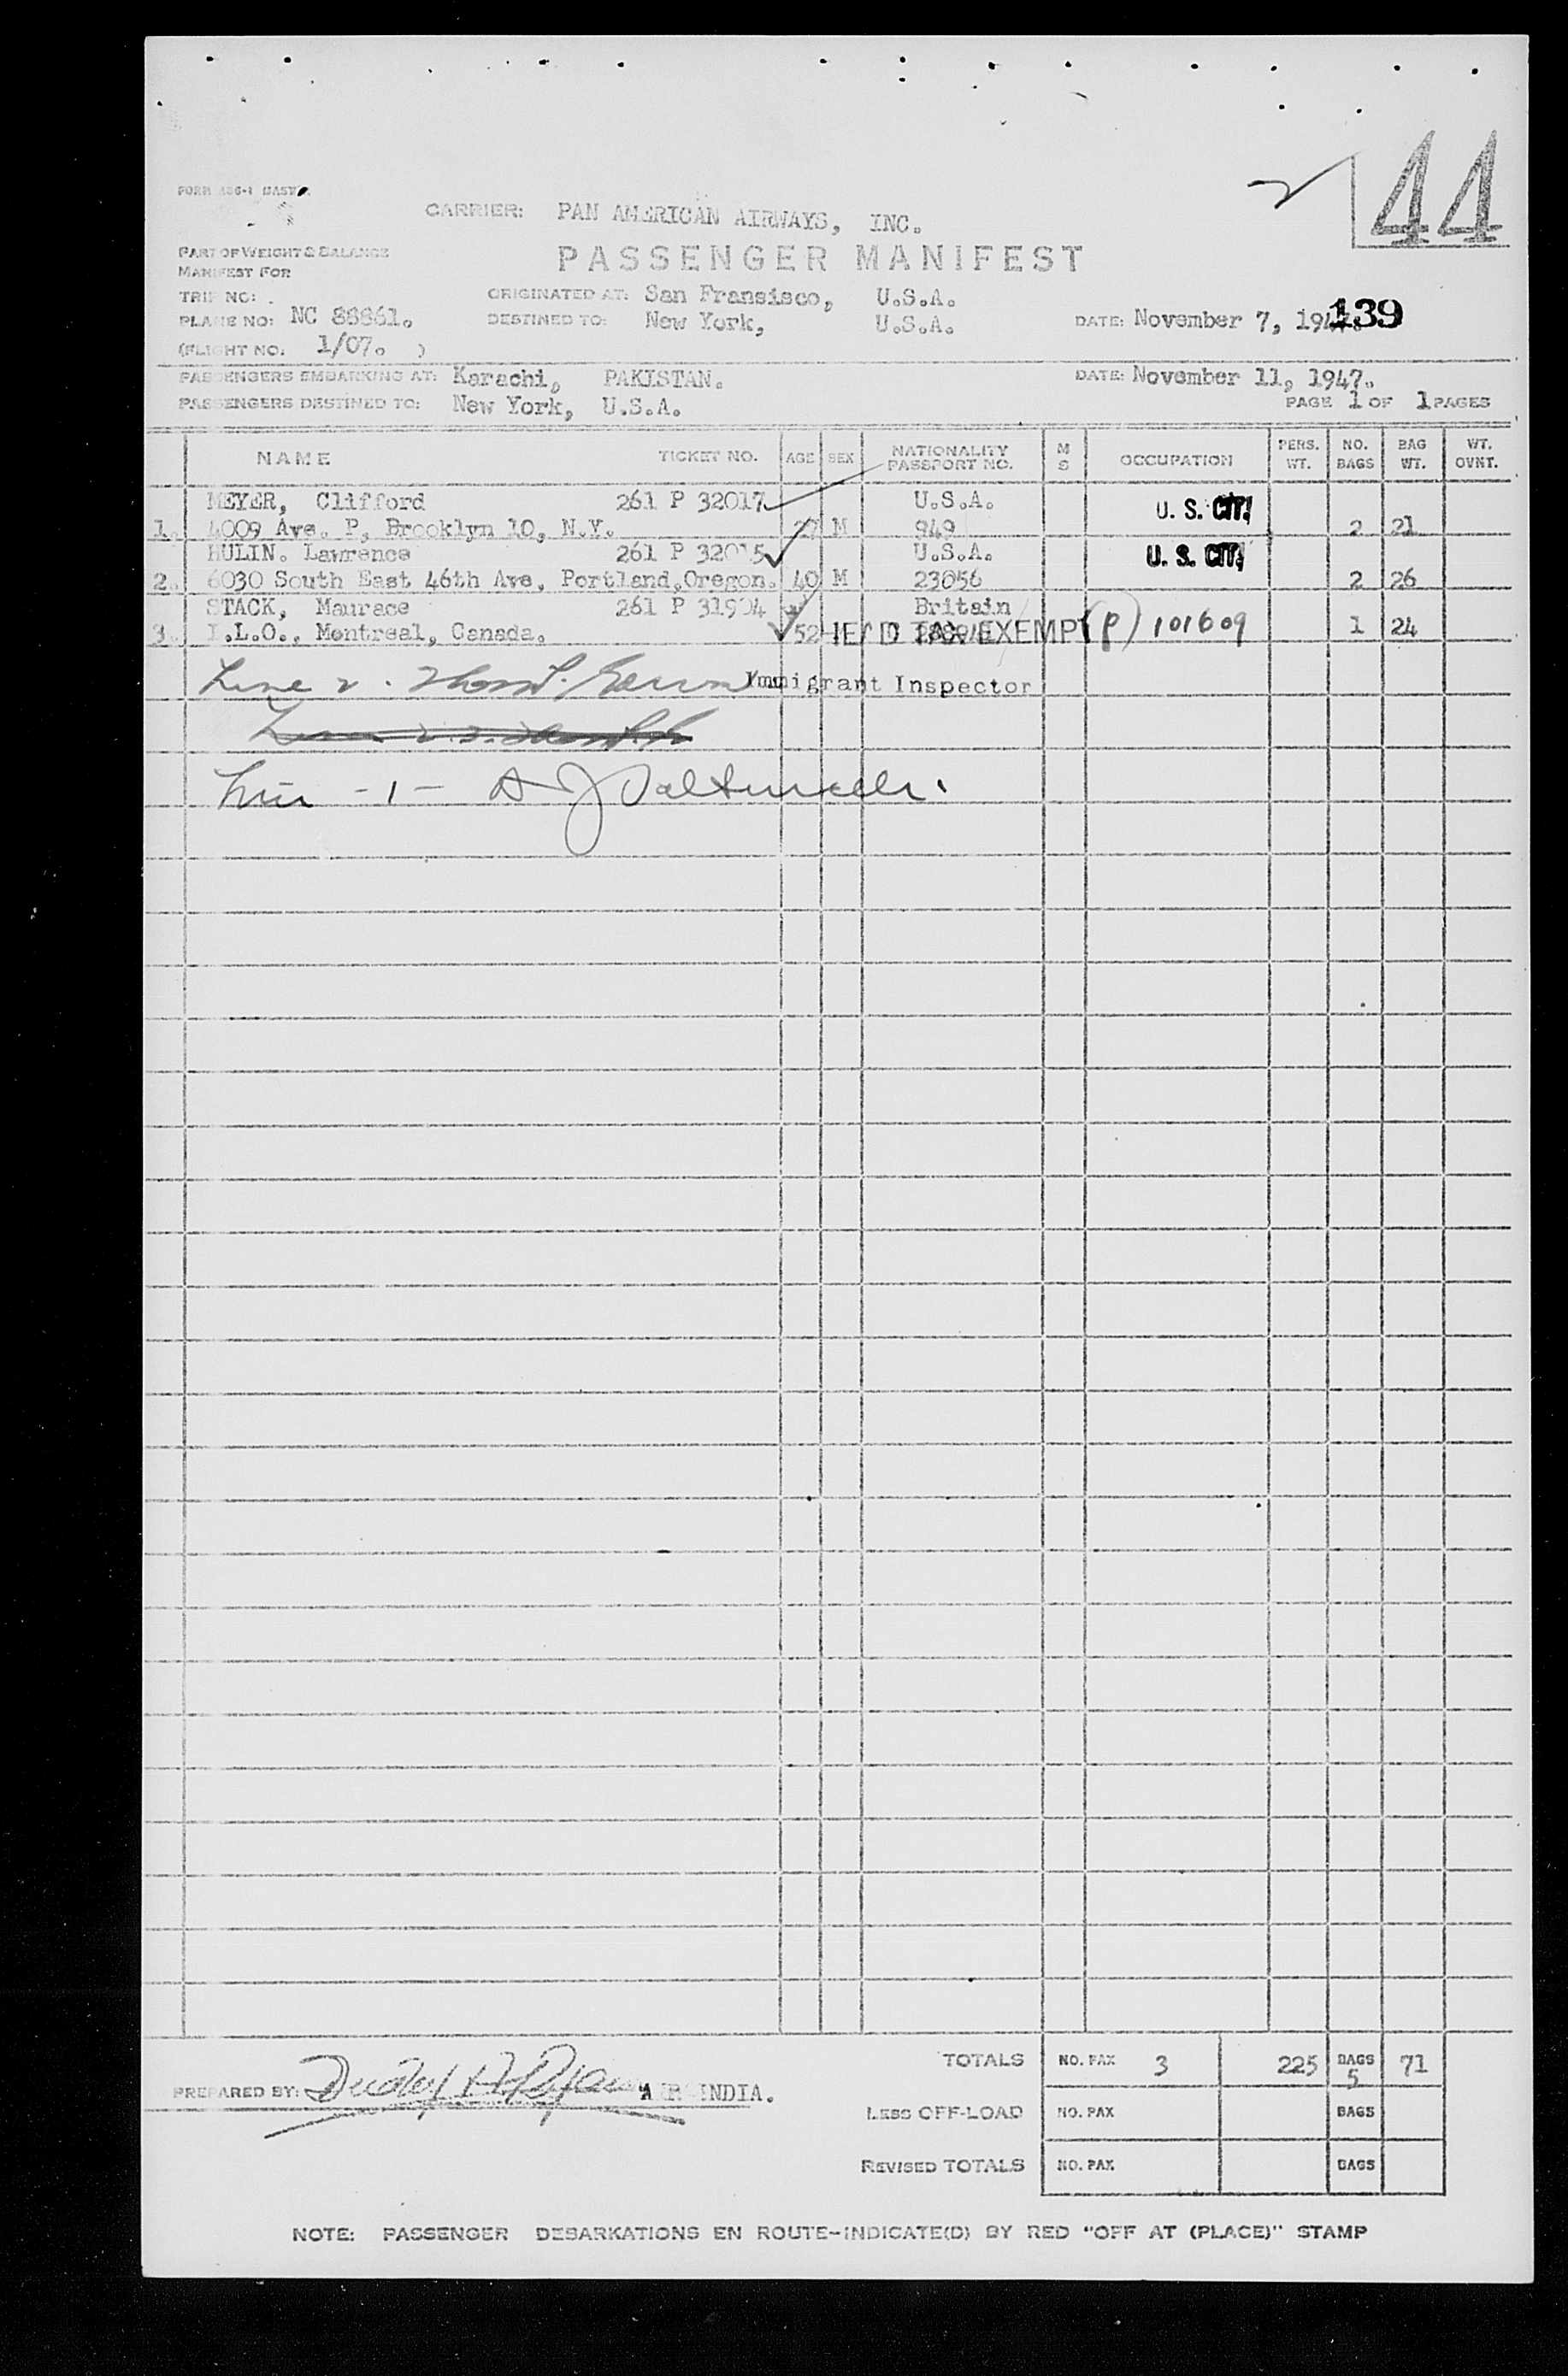 44
FORM
CARRIER: PAN AMERICAN AIRWAYS, INC.
PART OF WEIGHT & BALANCE
MANIFEST FOR
PASSENGER MANIFEST
TRIP NO:
ORIGINATED AT: San Fransisco, U.S.A.
PLANE NO: NC 88861.
DESTINED TO: New York, U.S.A.
DATE: November 7, 1947.
139
(FLIGHT NO. 1/07. )
PASSENGERS EMBARKING AT: Karachi, PAKISTAN.
DATE: November 11, 1947.
PASSENGERS DESTINED TO: New York, U.S.A.
PAGE 1 OF 1 PAGES
NAME TICKET NO. AGE SEX NATIONALITY PASSPORT NO. M S OCCUPATION PERS. WT. NO. BAGS BAG WT. WT. OVNT.
MEYER, Clifford 261 P 32017 U.S.A. U. S. CIT.
1. 4009 Ave. P, Brooklyn 10, N.Y. 27 M 949 2 21
HULIN. Lawrence 261 P 32015 U.S.A. U. S. CIT.
2. 6030 South East 46th Ave, Portland,Oregon. 40 M 23056 2 26
STACK, Maurace 261 P 31904 Britain
3. I.L.O., Montreal, Canada. 52 HEAD TAX EXEMPT (P) 101609 1 24
Immigrant Inspector
- 1 -
TOTALS NO. PAX 3 225 BAGS 5 71
PREPARED BY: AIR INDIA.
LESS OFF-LOAD NO. PAX BAGS
REVISED TOTALS NO. PAX BAGS
NOTE: PASSENGER DEBARKATIONS EN ROUTE-INDICATE(D) BY RED "OFF AT (PLACE)" STAMP